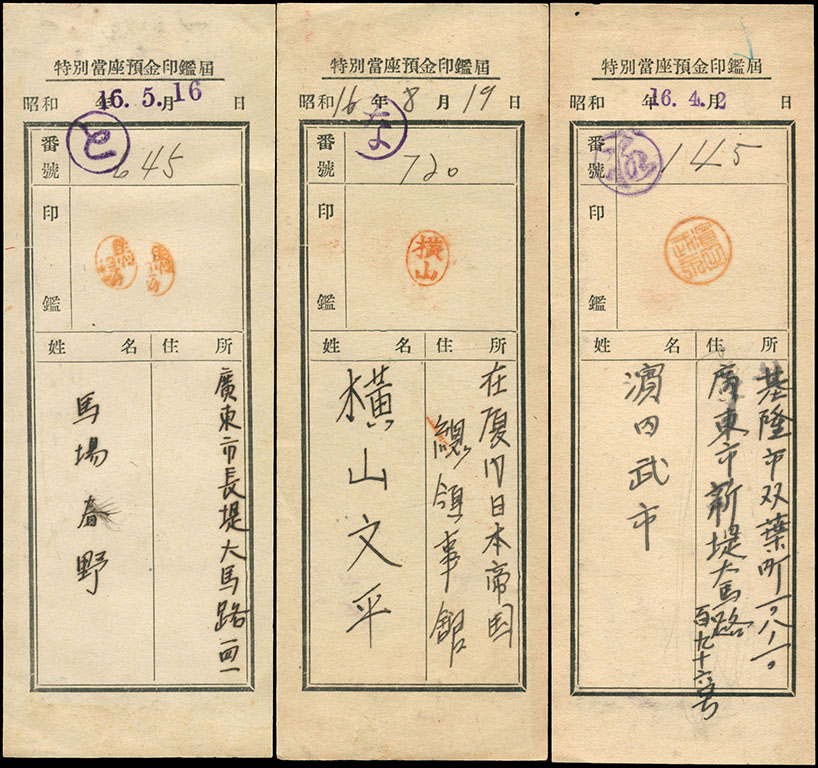 特別當座預金印鑑屆
昭和 年 月 日
16.5.16
番號
645
印鑑
姓名
住所
廣東市長堤大馬路一四一
馬場春野
特別當座預金印鑑屆
昭和16年8月19日
番號
720
印鑑
横山
姓名
住所
在厦门日本帝国
總領事館
横山文平
特別當座預金印鑑屆
昭和 年 月 日
16.4.2
番號
145
印鑑
姓名
住所
基隆市双葉町一ノ八ノ一
廣東市新堤大馬路
百九十六号
濱田武市